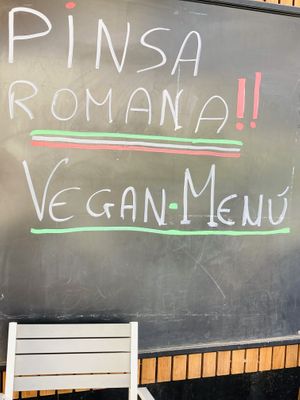 PINSA
ROMANA!!
VEGAN-MENÚ